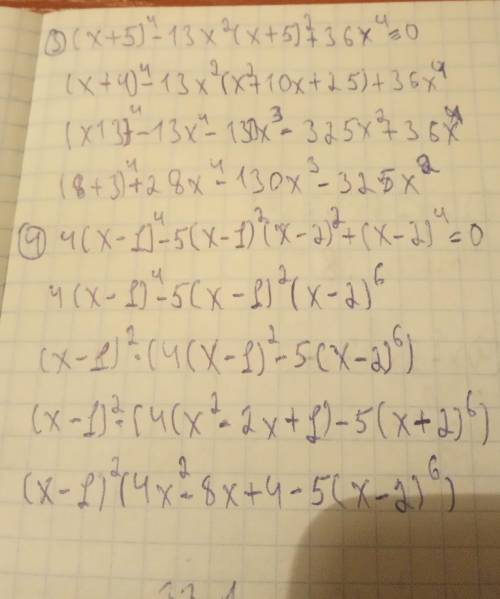 ③ (x+5)⁴-13x²(x+5)²+36x⁴=0
(x+4)⁴-13x²(x²+10x+25)+36x⁴
(x13)⁴-13x⁴-130x³-325x²+36x⁴
(8+3)⁴+28x⁴-130x³-325x²
④ 4(x-1)⁴-5(x-1)²(x-2)²+(x-2)⁴=0
4(x-1)⁴-5(x-1)²(x-2)⁶
(x-1)²·(4(x-1)²-5(x-2)⁶)
(x-1)²·(4(x²-2x+1)-5(x+2)⁶)
(x-1)²(4x²-8x+4-5(x-2)⁶)